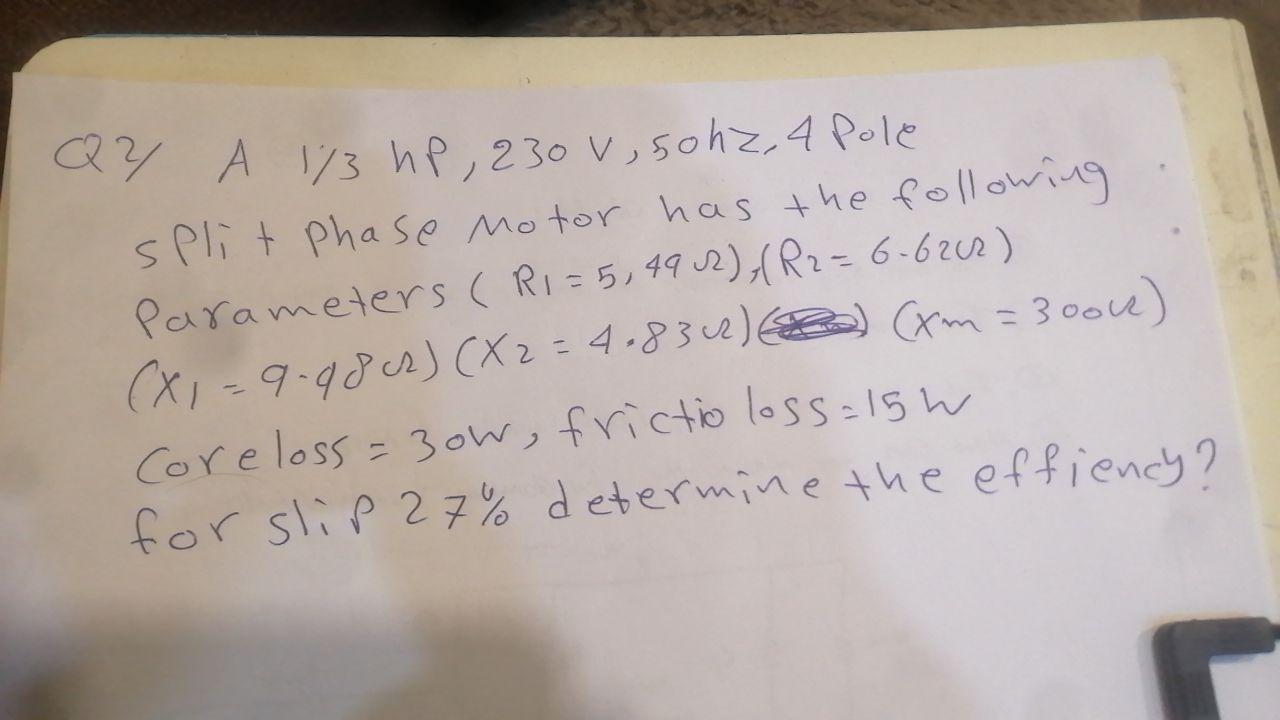 Q2/ A 1/3 hP, 230 V, 50hz, 4 Pole
split phase Motor has the following
Parameters ( R1 = 5,49Ω), (R2 = 6.62Ω)
(X1 = 9.98Ω) (X2 = 4.83Ω) (Xm = 300Ω)
Core loss = 30W, frictio loss = 15 W
for slip 27% determine the effiency?